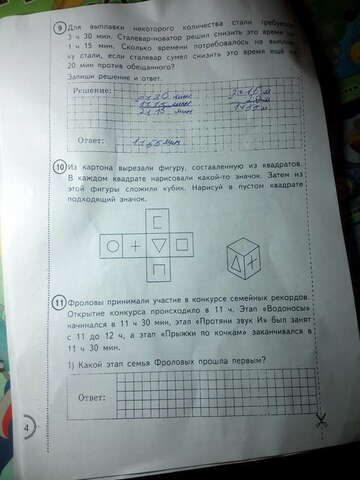 9 Для выплавки некоторого количества стали требуется
3 ч 30 мин. Сталевар-новатор решил снизить это время
1 ч 15 мин. Сколько времени потребовалось на выплав-
ку стали, если сталевар сумел снизить это время ещё
20 мин против обещанного?
Запиши решение и ответ.
Решение:
Ответ:
10 Из картона вырезали фигуру, составленную из квадратов.
В каждом квадрате нарисовали какой-то значок. Затем из
этой фигуры сложили кубик. Нарисуй в пустом квадрате
подходящий значок.
11 Фроловы принимали участие в конкурсе семейных рекордов.
Открытие конкурса происходило в 11 ч. Этап «Водоносы»
начинался в 11 ч 30 мин, этап «Протяни звук И» был занят
с 11 до 12 ч, а этап «Прыжки по кочкам» заканчивался в
11 ч 30 мин.
1) Какой этап семья Фроловых прошла первым?
Ответ:
4